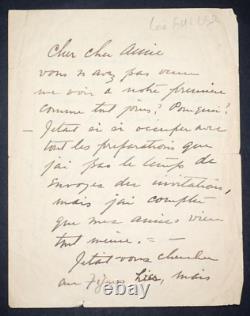 Cher cher Amie
vous n'avez pas venue
me voir a notre première
comme tout jours? Pourquoi?
J'etait si si occupée avec
tout les preparations que
j'ai pas le temps de
envoyer des invitations,
mais j'ai compté
que mes amies vien
tout meme. —
J'etait vous chercher
au hier, mais